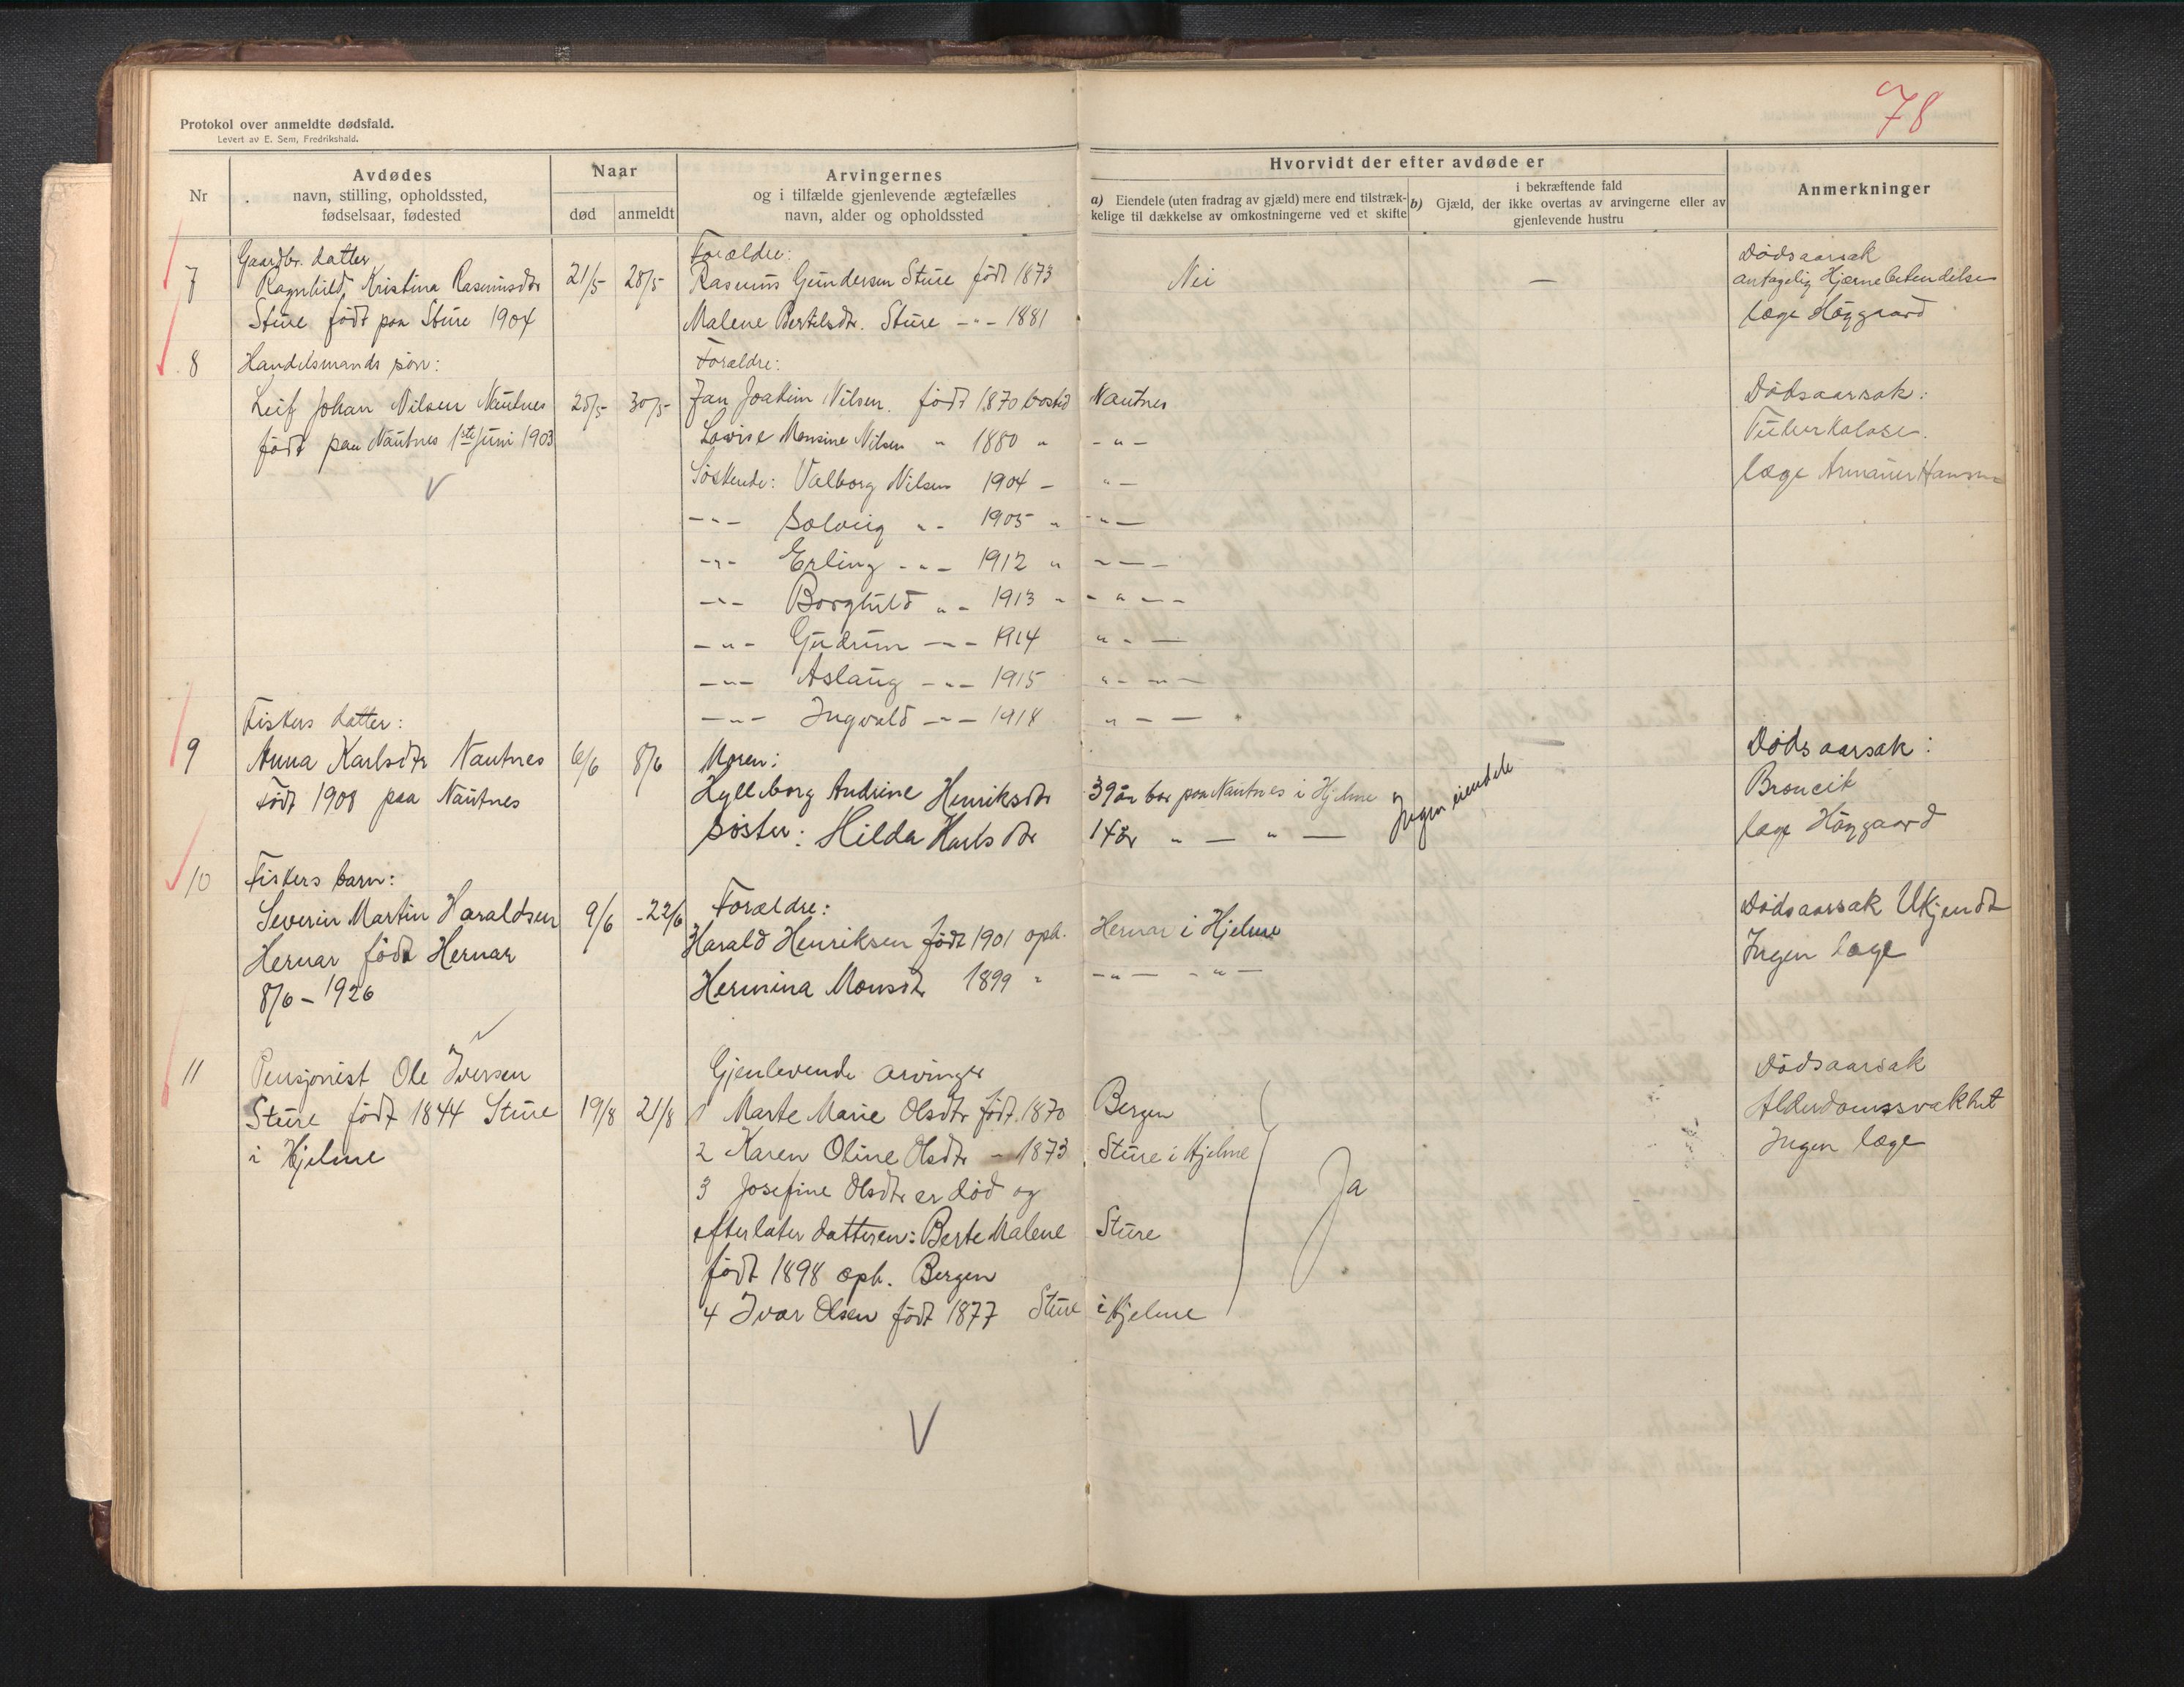 78
Protokol over anmeldte dødsfald.
Levert av E. Sem, Fredrikshald.
Nr
Avdødes
navn, stilling, opholdssted,
fødselsaar, fødested
Naar
død
anmeldt
Arvingernes
og i tilfælde gjenlevende ægtefælles
navn, alder og opholdssted
Hvorvidt der efter avdøde er
a) Eiendele (uten fradrag av gjæld) mere end tilstræk-
kelige til dækkelse av omkostningerne ved et skifte
i bekræftende fald
b) Gjæld, der ikke overtas av arvingerne eller av
gjenlevende hustru
Anmerkninger
Gaardbr. datter Forældre: Dødsaarsak
7 Ragnhild Kristina Rasmusdtr 21/5 28/5 Rasmus Gundersen Sture født 1873 Nei — antagelig Hjærnebetændelse
Sture født paa Sture 1904 Malene Bertelsdtr. Sture -"- 1881 læge Høggaard
8 Handelsmands søn: Forældre:
Leif Johan Nilsen Nautnes 28/5 30/5 Jan Joakim Nilsen. født 1870 bosted Nautnes Dødsaarsak:
født paa Nautnes 1ste Juni 1903 Lovise Monsine Nilsen " 1880 " -"- Tuberkolose.
Søskende: Valborg Nilsen 1904 - "- læge Armauer Hansen
-"- Solveig "- 1905 " -"-
-"- Erling -"- 1912 " -"-
-"- Borghild "- 1913 - -"--
-"- Gudrun -"- 1914 "-—
-"- Aslaug -"- 1915 "- -"-
Fiskers datter: -"- Ingvald -"- 1918 " - —
9 Anna Karlsdtr Nautnes 6/6 8/6 Moren: — Dødsaarsak:
Født 1908 paa Nautnes Hylleborg Andrine Henriksdtr 39 år bor paa Nautnes i Hjelme Ingen eiendele Broncit
Søster: Hilda Karlsdtr 14 år " — " — læge Høggaard
10 Fiskers barn:
Severin Martin Haraldsen 9/6 -22/6 Forældre: Dødsaarsak Ukjendt
Hernar født Hernar Harald Henriksen født 1901 oph. Hernar i Hjelme Ingen læge
8/6 - 1926 Hermina Monsdtr 1899 " -"- -"-
11 Pensjonist Ole Iversen Gjenlevende arvinger Dødsaarsak
Sture født 1844 Sture 19/8 21/8 1 Marte Marie Olsdtr født 1870 Bergen Alderdomssvakhet
i Hjelme 2 Karen Oline Olsdtr - 1873 Sture i Hjelme Ja Ingen læge
3 Josefine Olsdtr er død og
efterlater datteren: Berte Malene Sture
født 1898 oph. Bergen
4 Ivar Olsen født 1877 Sture i Hjelme